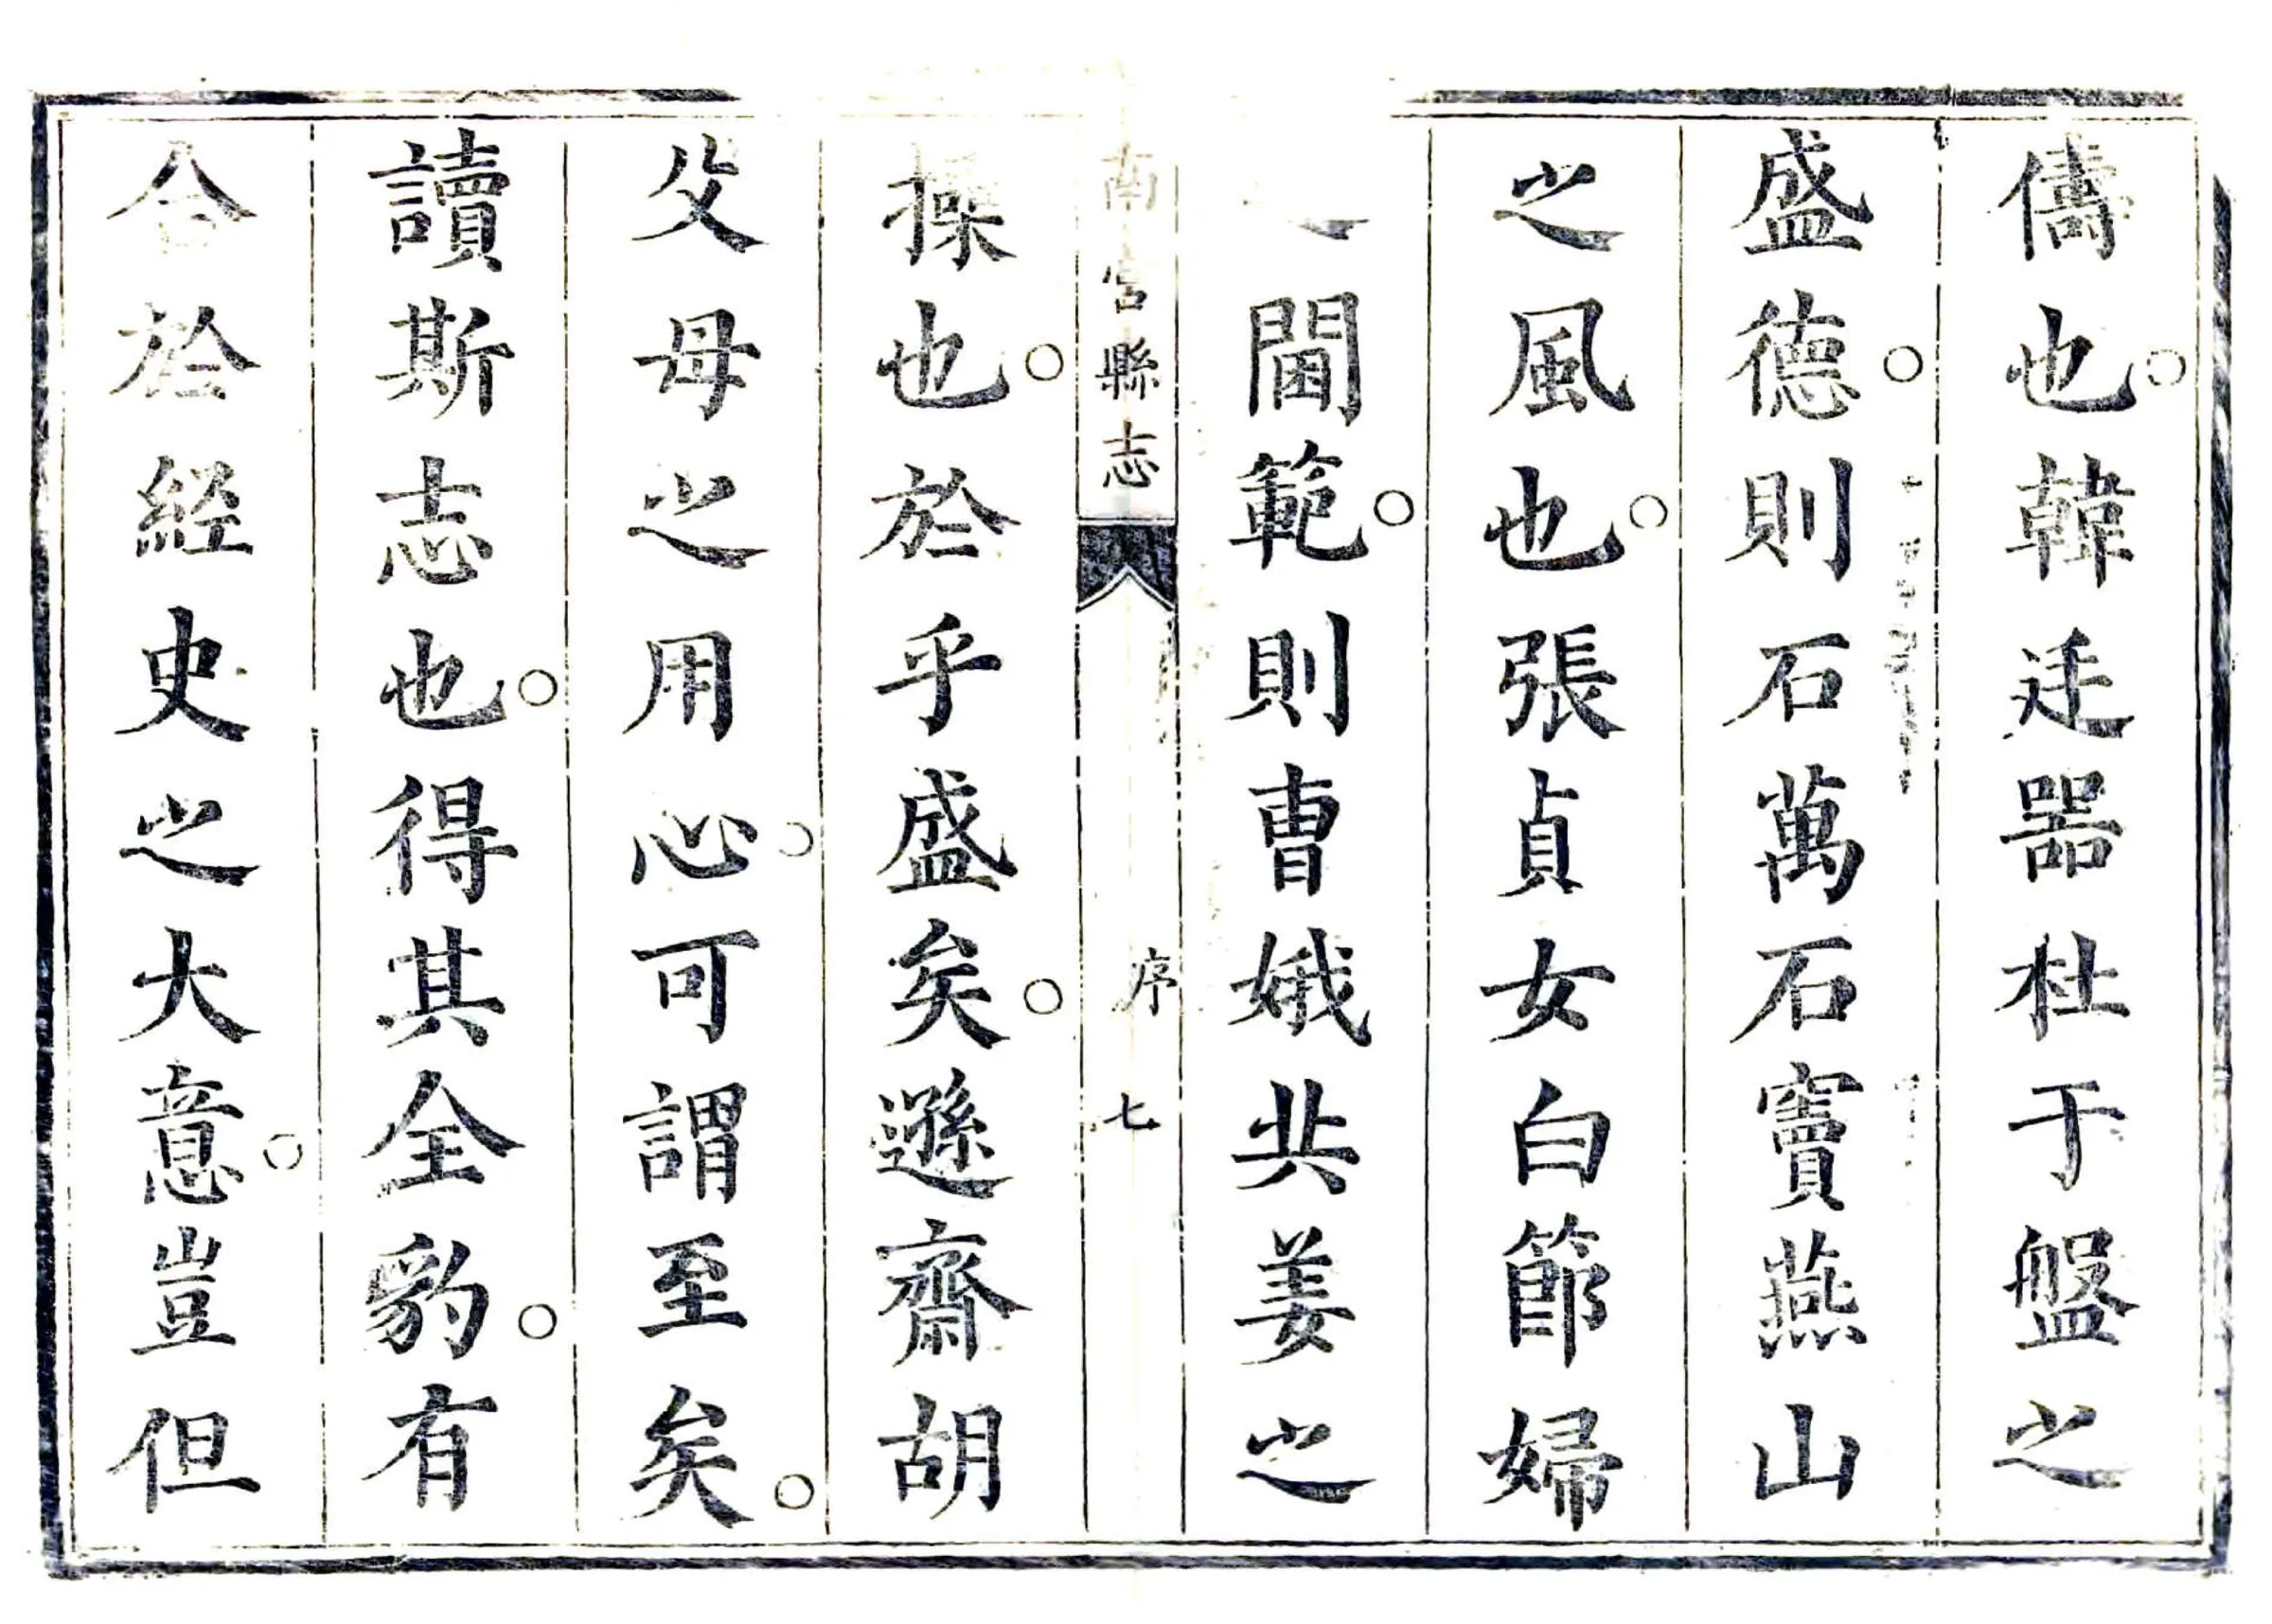 儔也○韓廷器杜于盤之
盛德○則石萬石竇燕山
之風也○張貞女白節婦
之閫範○則曹娥共姜之
南宮縣志 序 七
操也○於乎盛矣○遜齋胡
父母之用心○可謂至矣○
讀斯志也○得其全豹○有
合於経史之大意○豈但